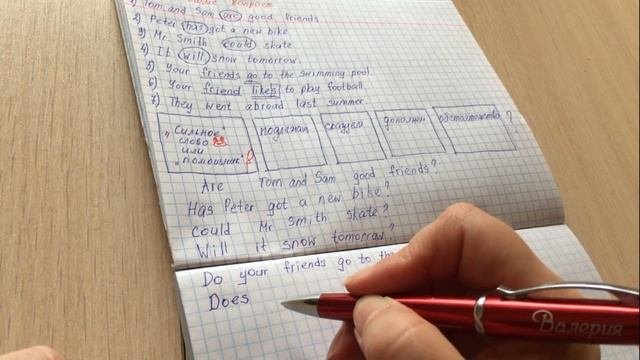 вопрос
1) Tom and Sam are good friends
2) Peter has got a new bike
3) Mr Smith could skate
4) It will snow tomorrow.
5) Your friends go to the swimming pool.
6) Your friend likes to play football
7) They went abroad last summer
"Сильное" слово или "помошник"! подлежащ сказуем дополнен обстоятельство ?
Are Tom and Sam good friends?
Has Peter got a new bike?
Could Mr Smith skate?
Will it snow tomorrow?
Do your friends go to the
Does
Валерия